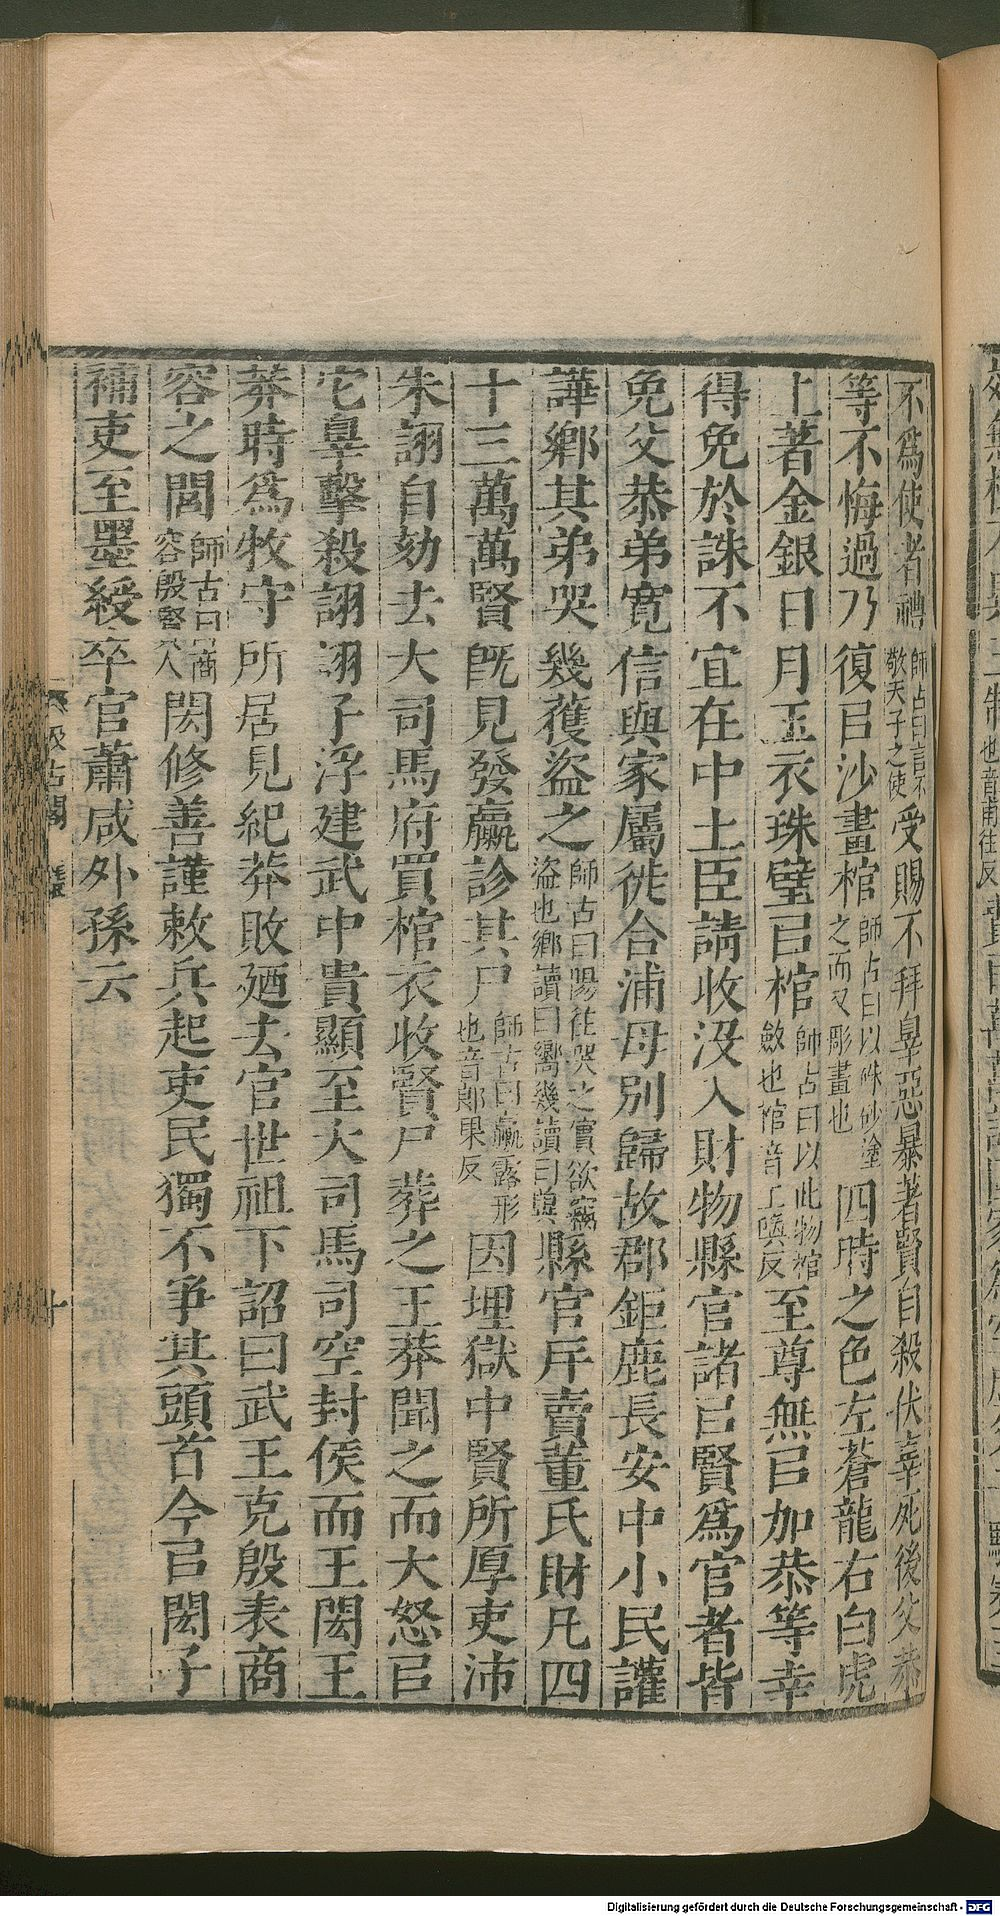 不爲使者禮師古曰言不敬天子之使受賜不拜辠惡暴著賢自殺伏辜死後父恭
等不悔過乃復㠯沙畫棺師古曰以硃砂塗之而又彫畫也四時之色左蒼龍右白虎
上著金銀日月玉衣珠璧㠯棺師古曰以此物棺斂也棺音工喚反至尊無㠯加恭等幸
得免於誅不宜在中土臣請收沒入財物縣官諸㠯賢爲官者皆
免父恭弟寬信與家屬徙合浦母別歸故郡鉅鹿長安中小民讙
譁鄉其弟哭幾獲盜之師古曰陽往哭之實欲竊盜也鄉讀曰嚮幾讀曰冀縣官斥賣董氏財凡四
十三萬萬賢旣見發臝診其尸師古曰臝露形也音郎果反因埋獄中賢所厚吏沛
朱詡自劾去大司馬府買棺衣收賢尸葬之王莽聞之而大怒㠯
它辠擊殺詡詡子浮建武中貴顯至大司馬司空封侯而王閎王
莽時爲牧守所居見紀莽敗廼去官世祖下詔曰武王克殷表商
容之閭師古曰商容殷賢人閎修善謹敕兵起吏民獨不爭其頭首今㠯閎子
補吏至墨綬卒官蕭咸外孫云
汲古閣
十
Digitalisierung gefördert durch die Deutsche Forschungsgemeinschaft - DFG